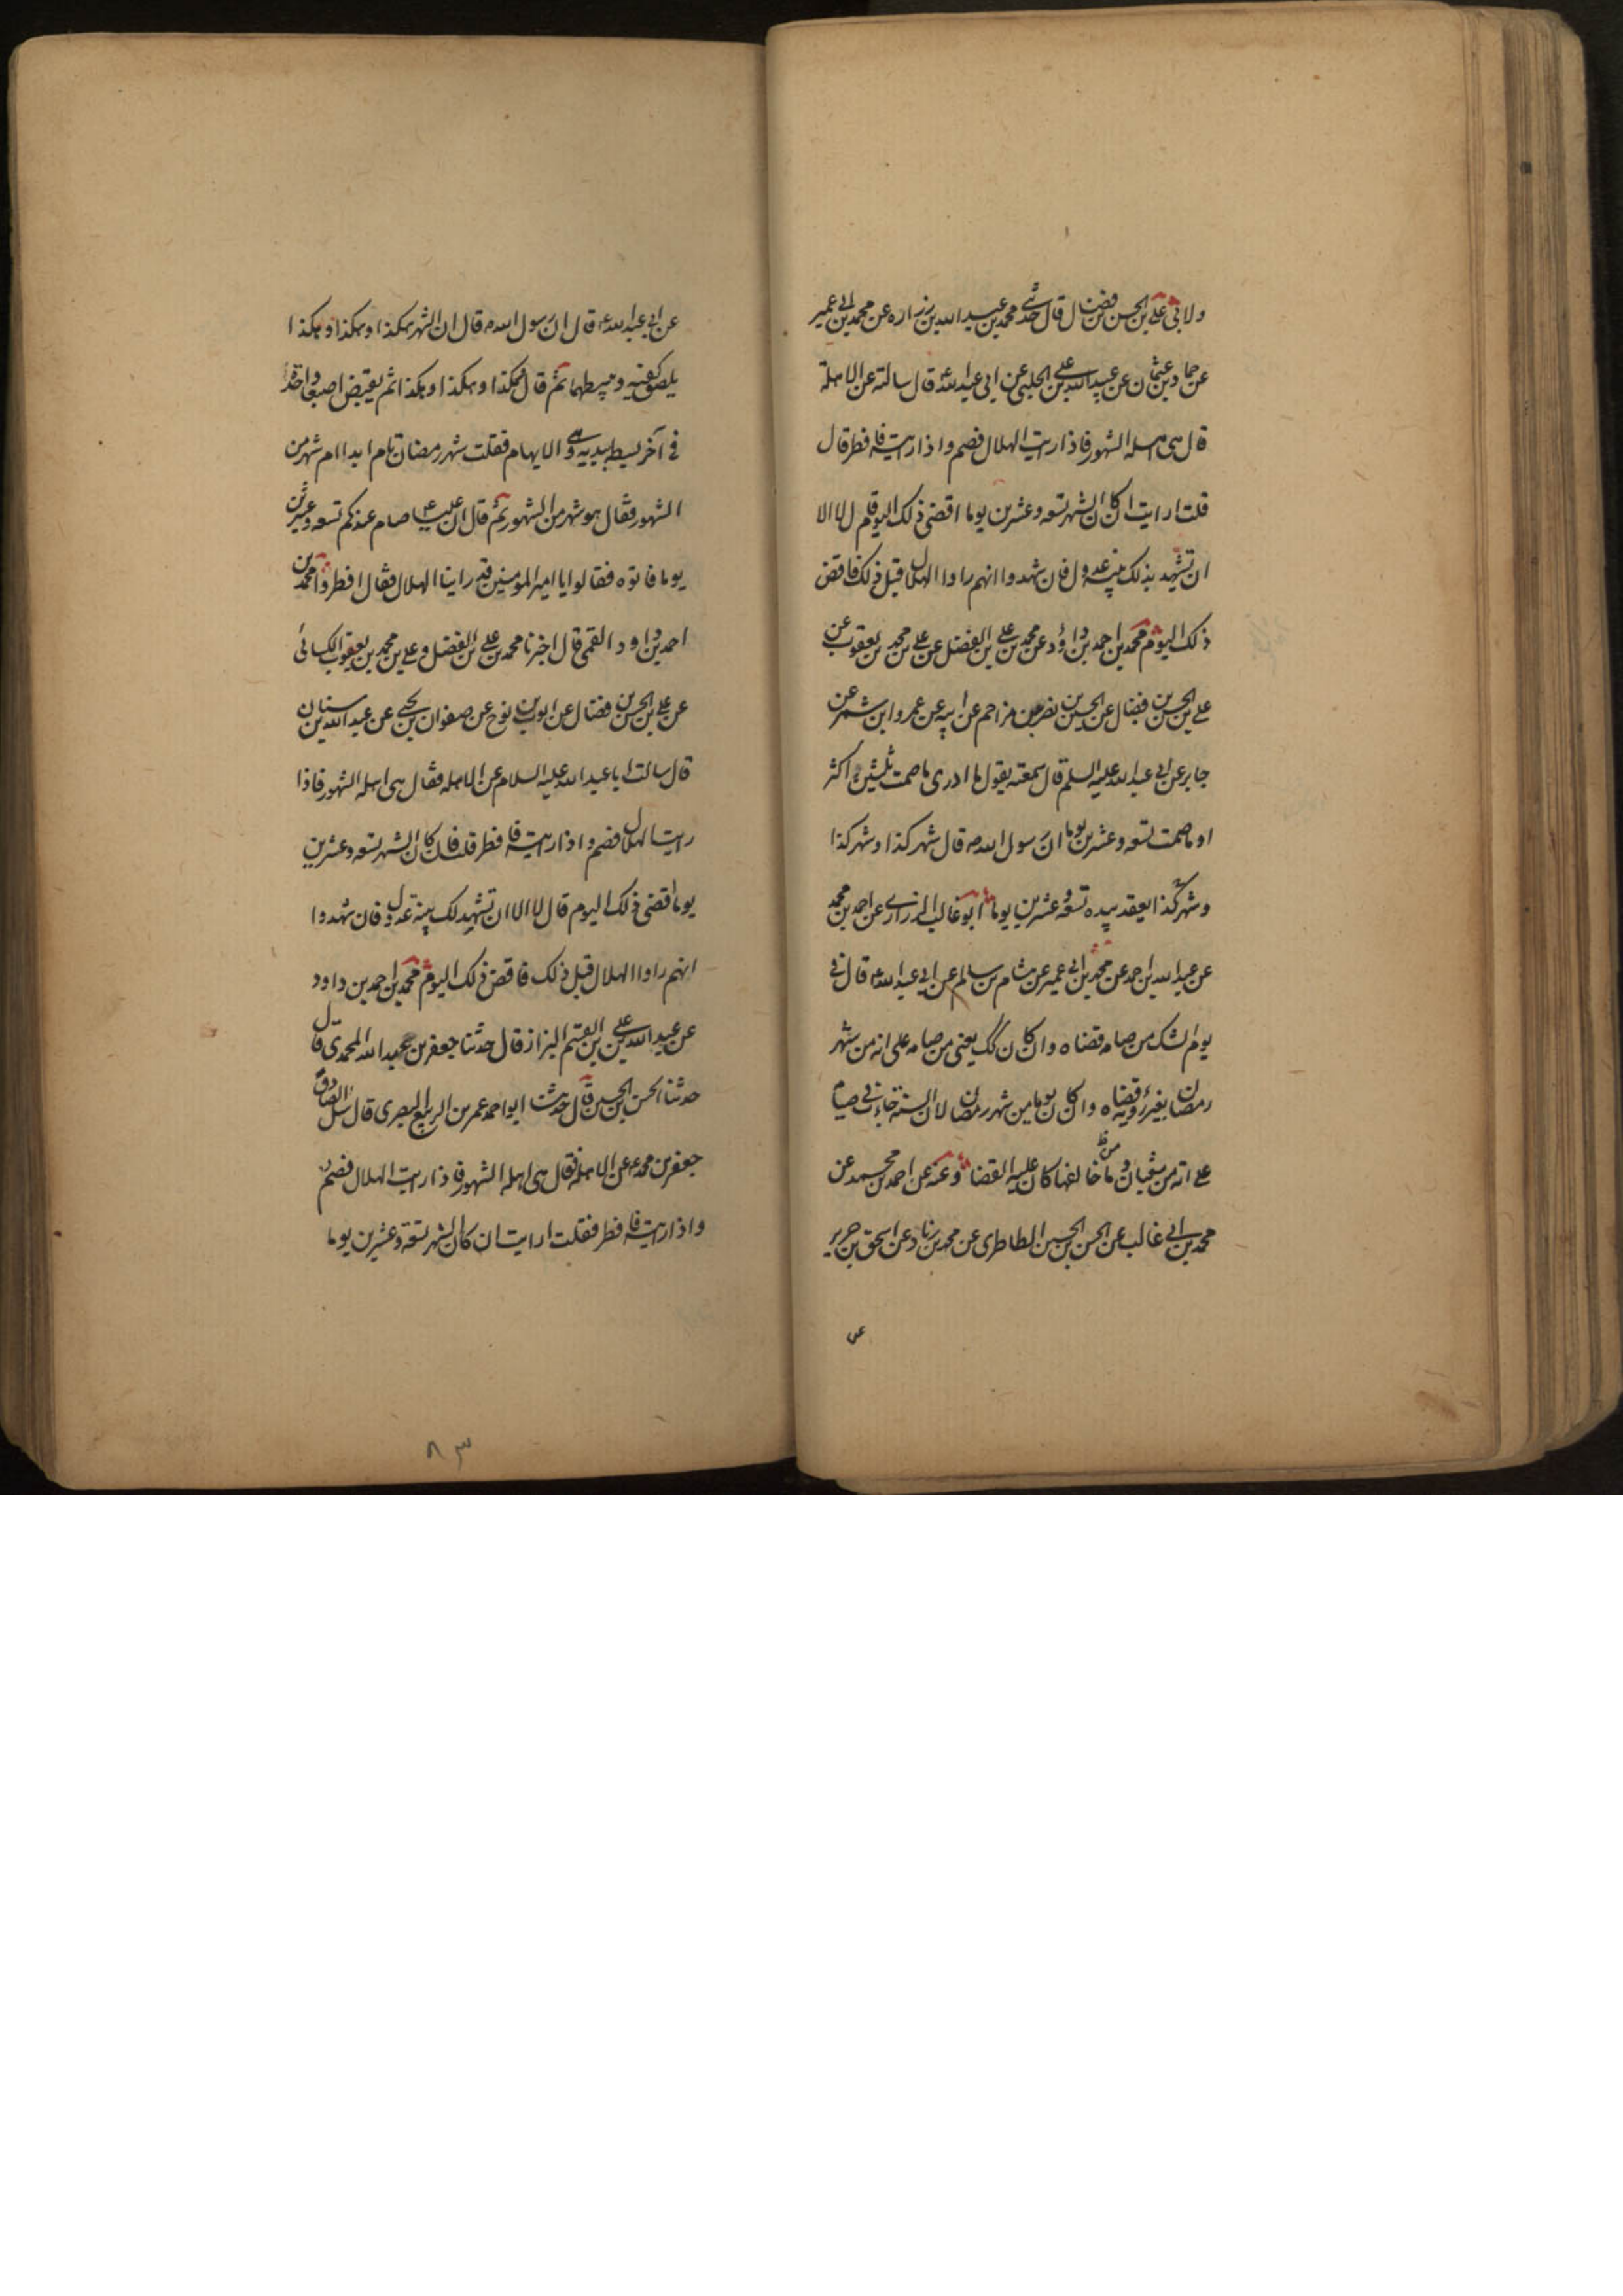 ولا في علي بن الحسن بن فضال قال حدثني محمد بن عبيد الله بن زراره عن محمد بن ابي عمير
عن حماد بن عثمان عن عبيد الله بن علي الحلبي عن ابي عبد الله ع قال سالته عن الاهلة
قال هي اهله الشهور فاذا رايت الهلال فصم واذا رايته فافطر قال
قلت ارايت ان كان الشهر تسعه وعشرين يوما اقضي ذلك اليوم قال لا الا
ان تشهد بذلك بينه عدول فان شهدوا انهم راوا الهلال قبل ذلك فاقض
ذلك اليوم محمد بن احمد بن داود عن محمد بن علي بن الفضل عن علي بن محمد بن يعقوب عن
علي بن الحسن بن فضال عن الحسين بن نصر بن مزاحم عن ابيه عن عمرو ابن شمر عن
جابر عن ابي عبد الله عليه السلم قال سمعته يقول ما ادري ما صمت ثلثين اكثر
او ما صمت تسعه وعشرين يوما ان رسول الله ص قال شهر كذا وشهر كذا
وشهر كذا يعقد بيده تسعه وعشرين يوما ابو غالب الزراري عن احمد بن محمد
عن عبد الله بن احمد عن محمد بن ابي عمير عن هشام بن سالم عن ابي عبد الله ع قال في
يوم الشك من صامه قضاه وان كان كك يعني من صامه على انه من شهر
رمضان بغير رؤية قضاه وان كان يوما من شهر رمضان لان السنة جاءت في صيامه
على انه من شعبان ومن خالفها كان عليه القضا وعنه عن احمد بن محمد عن
محمد بن ابي غالب عن الحسن بن الحسين الطاطري عن محمد بن زياد عن اسحق بن جرير
عن
عن ابي عبد الله ع قال ان رسول الله ص قال ان الشهر هكذا وهكذا وهكذا
يلصق كفيه ويبسطهما ثم قال وهكذا وهكذا وهكذا ثم يقبض اصبعا واحدة
في آخر بسطه بيديه وهي الابهام فقلت شهر رمضان تام ابدا ام شهر من
الشهور فقال هو شهر من الشهور ثم قال ان عليا ع صام عندكم تسعه وعشرين
يوما فاتوه فقالوا يا امير المومنين قد راينا الهلال فقال افطروا محمد بن
احمد بن داود القمي قال اخبرنا محمد بن علي بن الفضل وعلي بن محمد بن يعقوب الكسائي
عن علي بن الحسن بن فضال عن ايوب بن نوح عن صفوان بن يحيى عن عبد الله بن سنان
قال سالت ابا عبد الله عليه السلام عن الاهله فقال هي اهله الشهور فاذا
رايت الهلال فصم واذا رايته فافطر قلت فان كان الشهر تسعه وعشرين
يوما اقضي ذلك اليوم قال لا الا ان تشهد لك بينة عدول فان شهدوا
انهم راوا الهلال قبل ذلك فاقض ذلك اليوم محمد بن احمد بن داود
عن عبد الله بن علي بن القسم البزاز قال حدثنا جعفر بن عبد الله المحمدي قال
حدثنا الحسن بن الحسين قال حدثنا ابو احمد عمر بن الربيع البصري قال سئل الصادق
جعفر بن محمد ع عن الاهلة فقال هي اهله الشهور فاذا رايت الهلال فصم
واذا رايته فافطر فقلت ارايت ان كان الشهر تسعة وعشرين يوما
٨٣